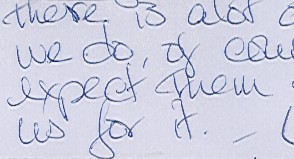 there is alot
we do, of cou
expect them
us for it. –